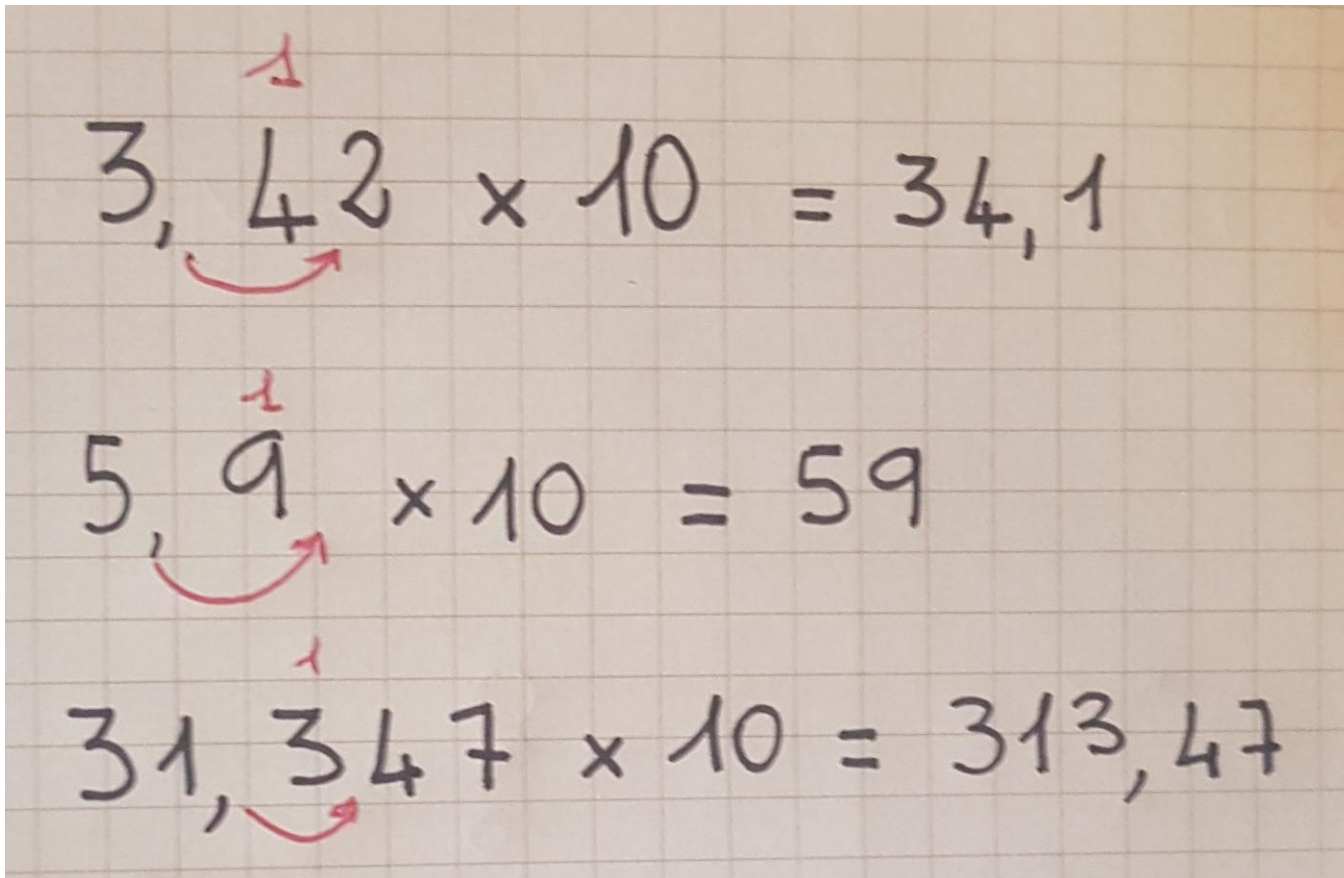 1
3,42 x 10 = 34,1
1
5,9 x 10 = 59
1
31,347 x 10 = 313,47